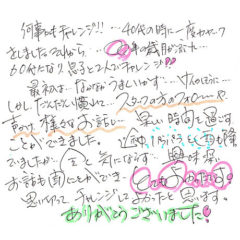 何事もチャレンジ!! …40代の時に一度カヤック
をしましてから、… 年の歳月が流れ…
60代になり息子と2人でチャレンジ
最初は、なかなかうまくいかず…
しかし だんだん慣れて、スタッフの方のフォローや
声かけ、様々なお話し… 楽しい時間を過ごす
ことができました。 雨も降
ましたが、全く気にならず 興味深い
お話も聞くことができ、とてもよかったです!
思いきって、チャレンジしてよかったと思います。
ありがとうございました!